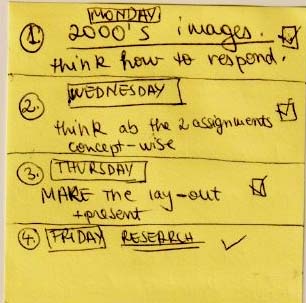 MONDAY
1. 2000's images.
think how to respond.
2. WEDNESDAY
think ab the 2 assignments
concept-wise
3. THURSDAY
MAKE The lay-out
+present
4. FRIDAY RESEARCH